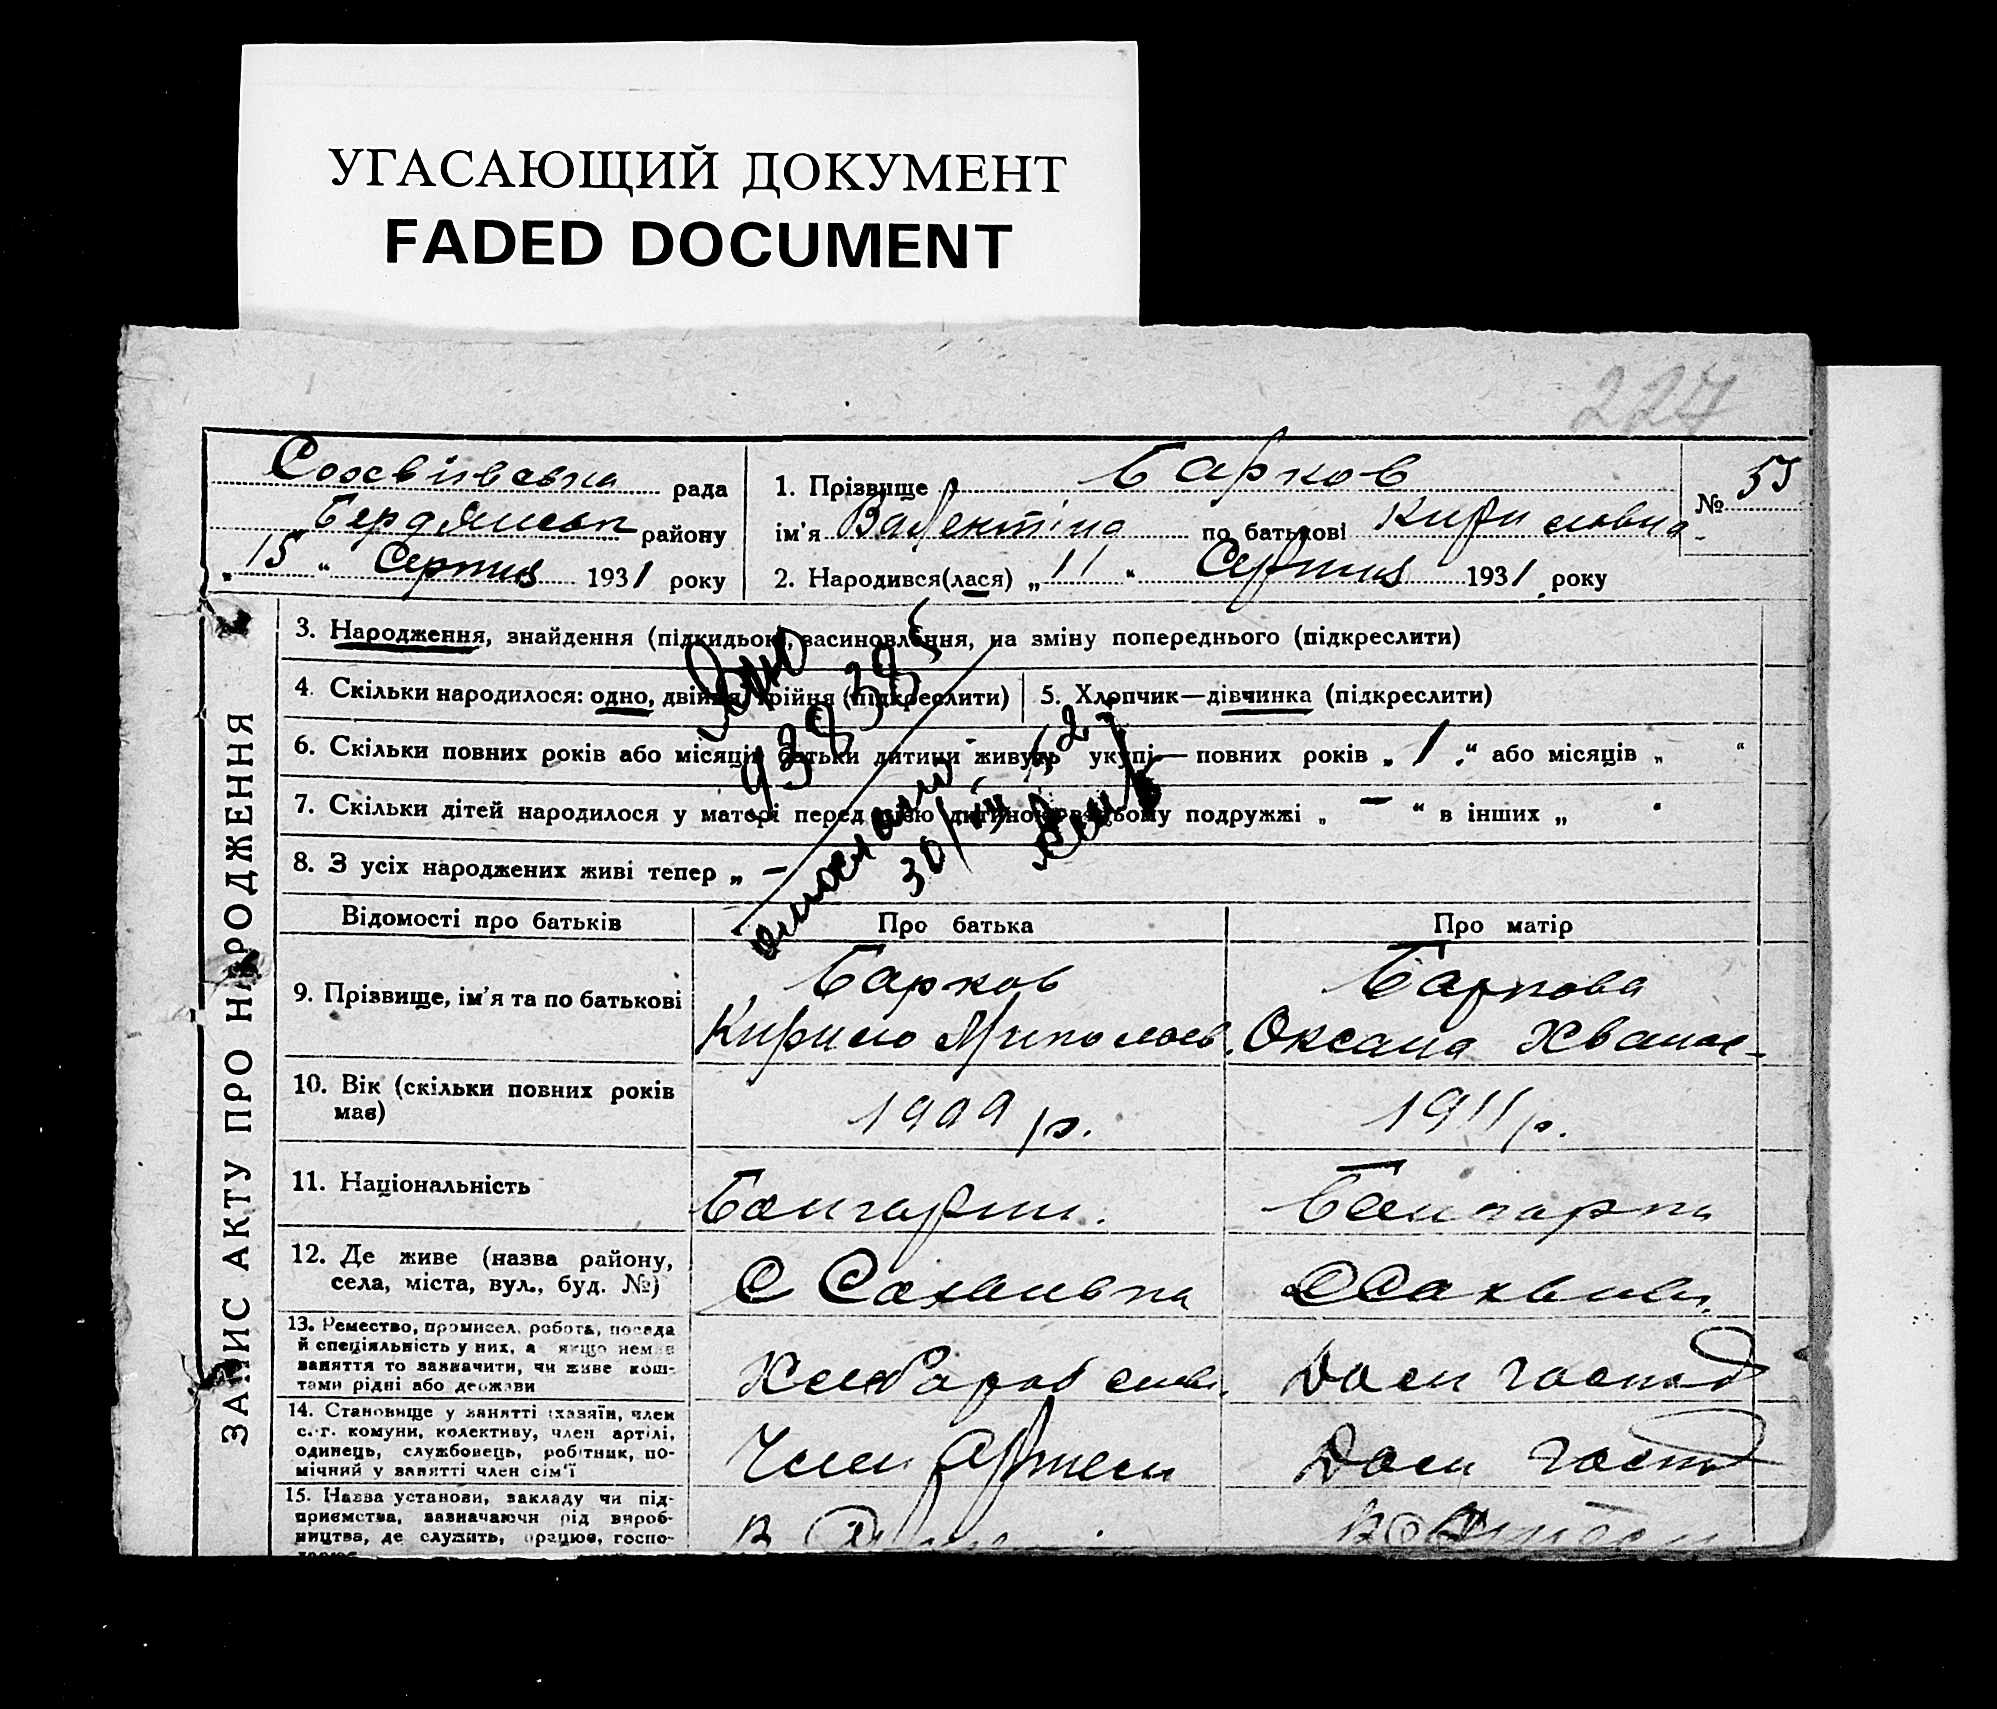 УГАСАЮЩИЙ ДОКУМЕНТ
FADED DOCUMENT
227
рада
району
„15“ Серпня 1931 року
1. Прізвище Барков
№ 55
ім'я Валентіна по батькові Кириловна
2. Народився(лася) „11“ Серпня 1931 року
ЗАПИС АКТУ ПРО НАРОДЖЕННЯ
3. Народження, знайдення (підкидьок), засиновлення, на зміну попереднього (підкреслити)
4. Скільки народилося: одно, двійня, трійня (підкреслити)
5. Хлопчик—дівчинка (підкреслити)
6. Скільки повних років або місяців батьки дитини живуть укупі— повних років „1“ або місяців „ “
7. Скільки дітей народилося у матері перед цією дитиною в цьому подружжі „—“ в інших „ “
8. З усіх народжених живі тепер „—
93838
30/
Відомості про батьків
Про батька
Про матір
9. Прізвище, ім'я та по батькові
Барков
Кирило
Баркова
Оксана
10. Вік (скільки повних років має)
1909 р.
1911 р.
11. Національність
Болгарин.
Болгарка
12. Де живе (назва району,
села, міста, вул., буд. №)
С
13. Ремество, промисел, робота, посада
й спеціяльність у них, а якщо немає
заняття то зазначити, чи живе кош-
тами рідні або держави
Дом господ
14. Становище у занятті (хазяїн, член
с.-г. комуни, колективу, член артілі,
одинець, службовець, робітник, по-
мічний у занятті член сім'ї
Член Артели
Дом господ
15. Назва установи, закладу чи під-
приємства, зазначаючи рід вироб-
ництва, де служить, працює, госпо-
В
В Артели